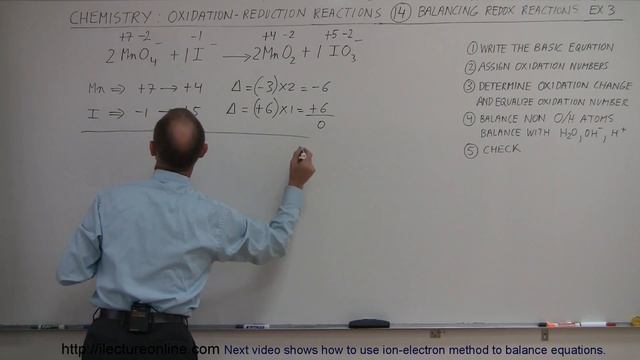 CHEMISTRY: OXIDATION-REDUCTION REACTIONS ⑭ BALANCING REDOX REACTIONS EX 3
+7 -2 -1 +4 -2 +5 -2
2 MnO₄⁻ + 1 I⁻ → 2 MnO₂ + 1 IO₃⁻
Mn ⇒ +7 → +4 Δ = (-3) × 2 = -6
I ⇒ -1 → +5 Δ = (+6) × 1 = +6
0
① WRITE THE BASIC EQUATION
② ASSIGN OXIDATION NUMBERS
③ DETERMINE OXIDATION CHANGE
AND EQUALIZE OXIDATION NUMBER
④ BALANCE NON O/H ATOMS
BALANCE WITH H₂O, OH⁻, H⁺
⑤ CHECK
http://ilectureonline.com Next video shows how to use ion-electron method to balance equations.